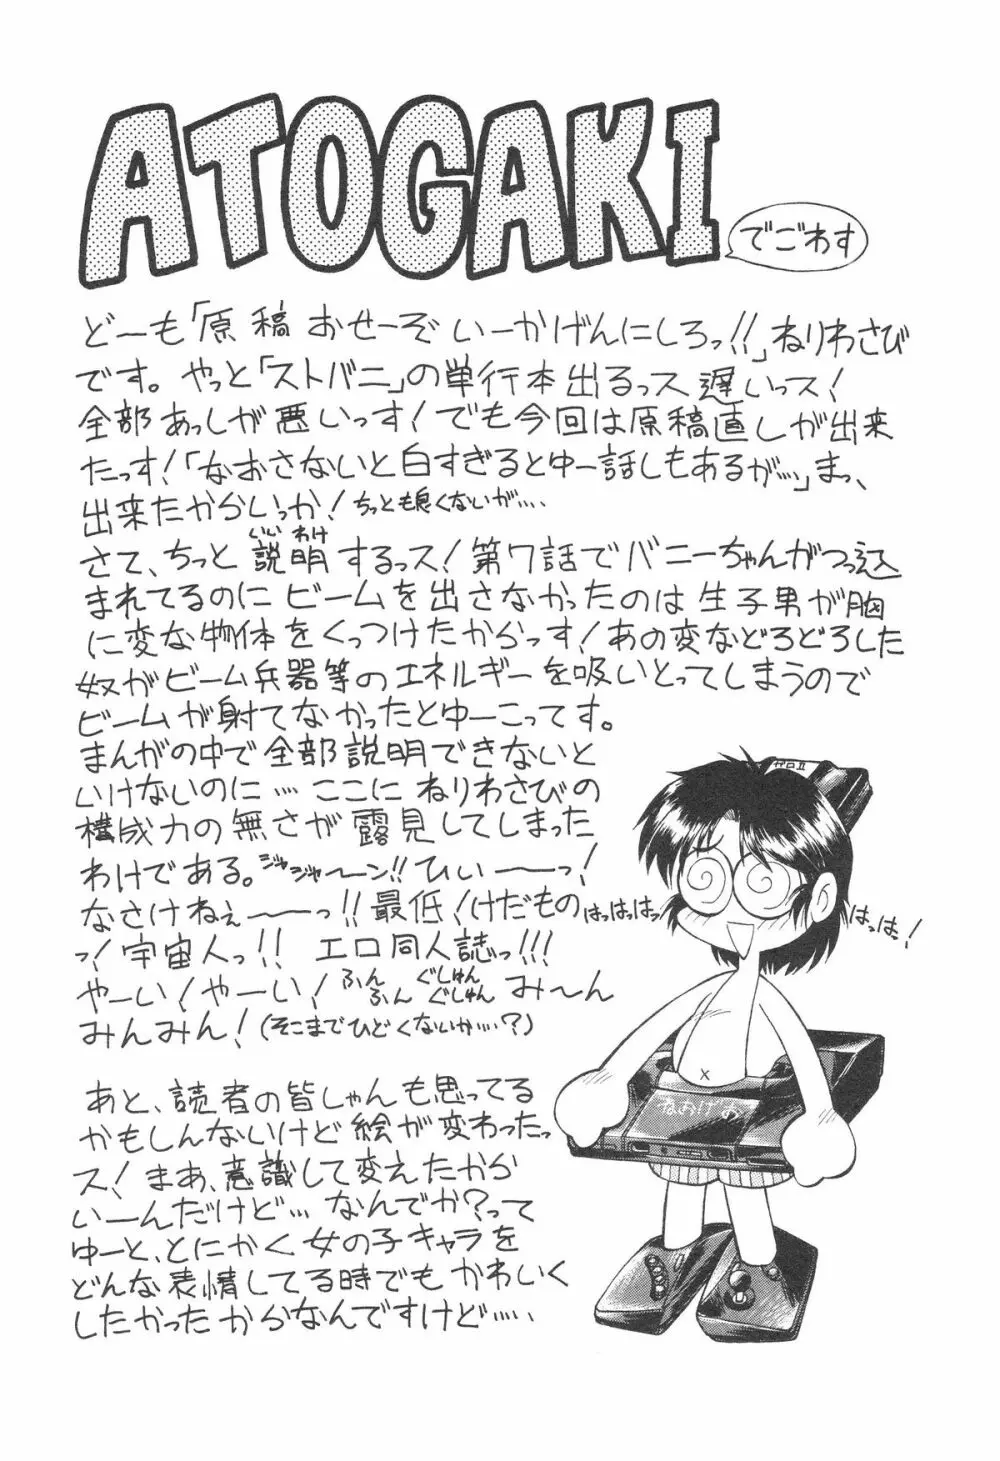 ATOGAKI
でごわす
どーも「原稿おせーぞいーかげんにしろっ!!」ねりわさび
です。やっと「ストバニ」の単行本出るっス遅いっス!
全部あっしが悪いっす!でも今回は原稿直しが出来
たっす!「なおさないと白すぎるとゆー話しもあるが…」まっ、
出来たからいっか!ちっとも良くないが….
さて、ちっと説明するっス!第7話でバニーちゃんがつっ込
いいわけ
まれてるのにビームを出さなかったのは生子男が胸
に変な物体をくっつけたからっす!あの変などろどろした
奴がビーム兵器等のエネルギーを吸いとってしまうので
ビームが射てなかったとゆーこってす。
まんがの中で全部説明できないと
いけないのに…ここにねりわさびの
構成力の無さが露見してしまった
わけである。ジャジャ〜ン!!ひいーーっ!
なさけねぇーーっ!!最低!けだもの
っ!宇宙人っ!!エロ同人誌っ!!!
やーい!やーい!ふんふんぐしゅんぐしゅんみ〜ん
みんみん!(そこまでひどくないか….?)
あと、読者の皆しゃんも思ってる
かもしんないけど絵が変わったっ
ス!まあ、意識して変えたから
いーんだけど…なんでか?って
ゆーと、とにかく女の子キャラを
どんな表情してる時でもかわいく
したかったからなんですけど…..
はっはっはっ
はっはっ!
ねおげお